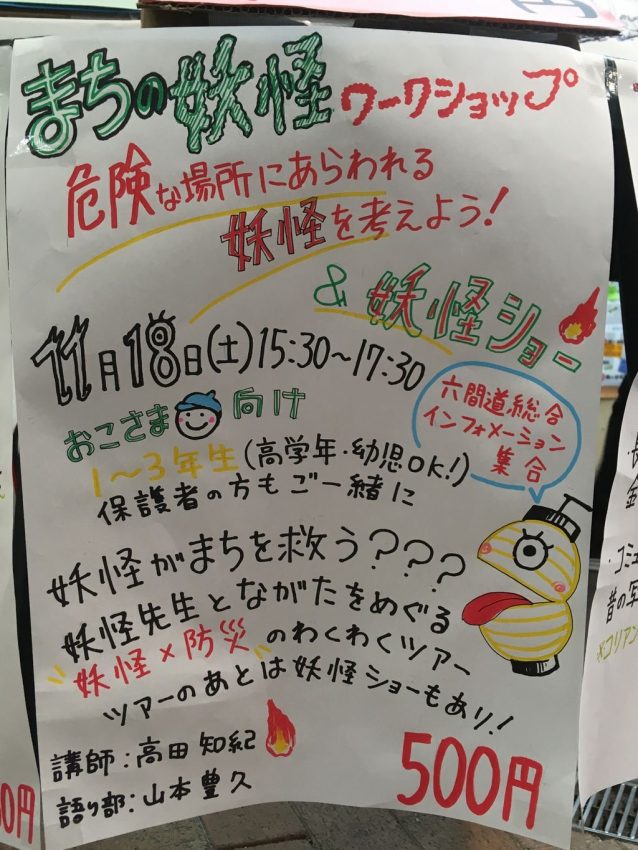 まちの妖怪ワークショップ
危険な場所にあらわれる
妖怪を考えよう!
& 妖怪ショー
11月18日(土)15:30~17:30
おこさま向け
六間道総合
インフォメーション
集合
1~3年生(高学年・幼児OK!)
保護者の方もご一緒に
妖怪がまちを救う???
妖怪先生とながたをめぐる
"妖怪×防災"のわくわくツアー
ツアーのあとは妖怪ショーもあり!
講師:高田 知紀
語り部:山本 豊久
500円
0円
・コミュ
昔の写
※コリアン